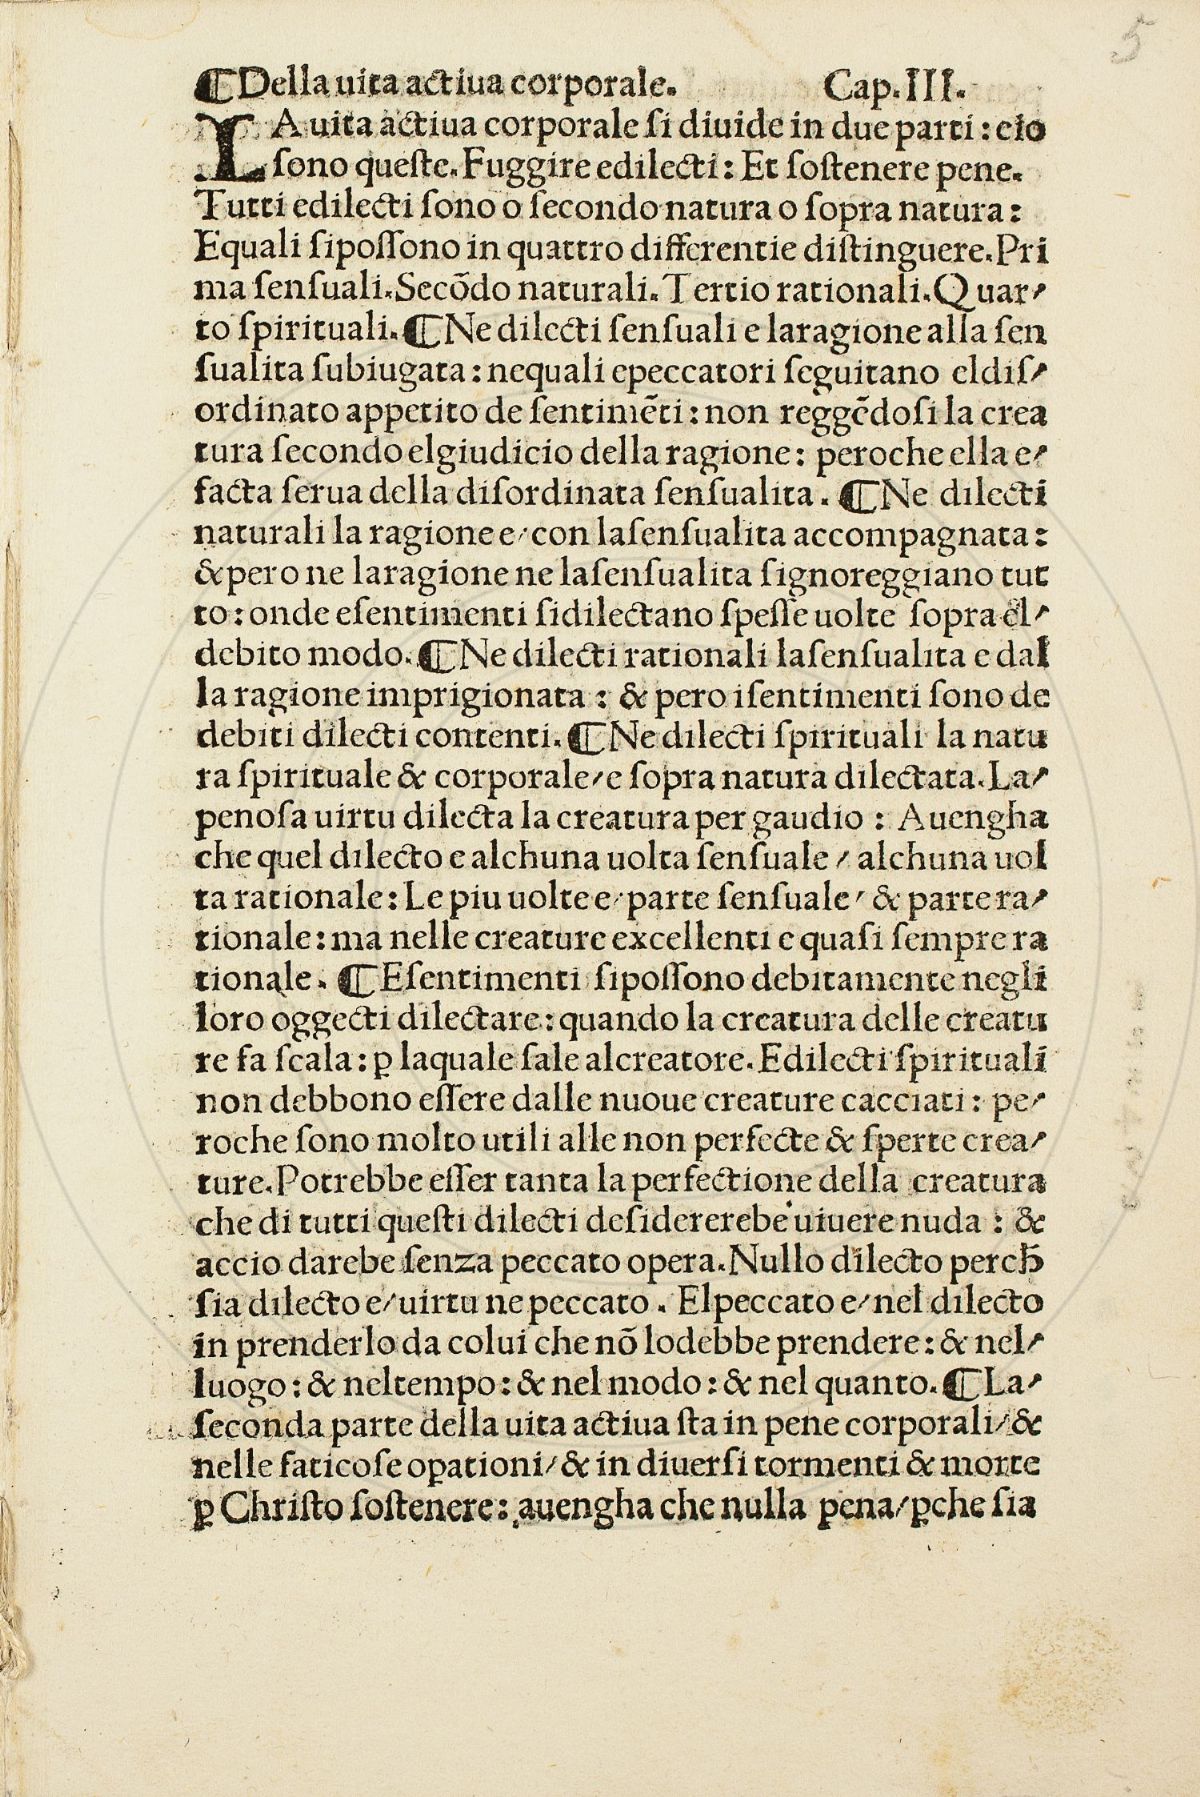 5
⸿Della uita actiua corporale. Cap.III.
LA uita actiua corporale ſi diuide in due parti: cio
ſono queſte. Fuggire edilecti: Et ſoſtenere pene.
Tutti edilecti ſono o ſecondo natura o ſopra natura:
Equali ſipoſſono in quattro differentie diſtinguere. Pri
ma ſenſuali. Secōdo naturali. Tertio rationali. Quar⸗
to ſpirituali. ⸿Ne dilecti ſenſuali e laragione alla ſen
ſualita ſubiugata: nequali epeccatori ſeguitano eldiſ⸗
ordinato appetito de ſentimēti: non reggēdoſi la crea
tura ſecondo elgiudicio della ragione: peroche ella e⸗
facta ſerua della diſordinata ſenſualita. ⸿Ne dilecti
naturali la ragione e/ con laſenſualita accompagnata:
& pero ne laragione ne laſenſualita ſignoreggiano tut
to: onde eſentimenti ſidilectano ſpeſſe uolte ſopra el⸗
debito modo. ⸿Ne dilecti rationali laſenſualita e dal
la ragione imprigionata: & pero iſentimenti ſono de
debiti dilecti contenti. ⸿Ne dilecti ſpirituali la natu
ra ſpirituale & corporale/ e ſopra natura dilectata. La⸗
penoſa uirtu dilecta la creatura per gaudio: Auengha
che quel dilecto e alchuna uolta ſenſuale/ alchuna uol
ta rationale: Le piu uolte e/ parte ſenſuale/ & parte ra⸗
tionale: ma nelle creature excellenti e quaſi ſempre ra
tionale. ⸿Eſentimenti ſipoſſono debitamente negli
loro oggecti dilectare: quando la creatura delle creatu
re fa ſcala: ꝑ laquale ſale alcreatore. Edilecti ſpirituali
non debbono eſſere dalle nuoue creature cacciati: pe⸗
roche ſono molto utili alle non perfecte & ſperte crea⸗
ture. Potrebbe eſſer tanta la perfectione della creatura
che di tutti queſti dilecti deſidererebe uiuere nuda: &
accio darebe ſenza peccato opera. Nullo dilecto percħ
ſia dilecto e/ uirtu ne peccato. Elpeccato e/ nel dilecto
in prenderlo da colui che nō lodebbe prendere: & nel⸗
luogo: & neltempo: & nel modo: & nel quanto. ⸿La⸗
ſeconda parte della uita actiua ſta in pene corporali/ &
nelle faticoſe oꝑationi/ & in diuerſi tormenti & morte
ꝑ Chriſto ſoſtenere: auengha che nulla pena/ ꝑche ſia